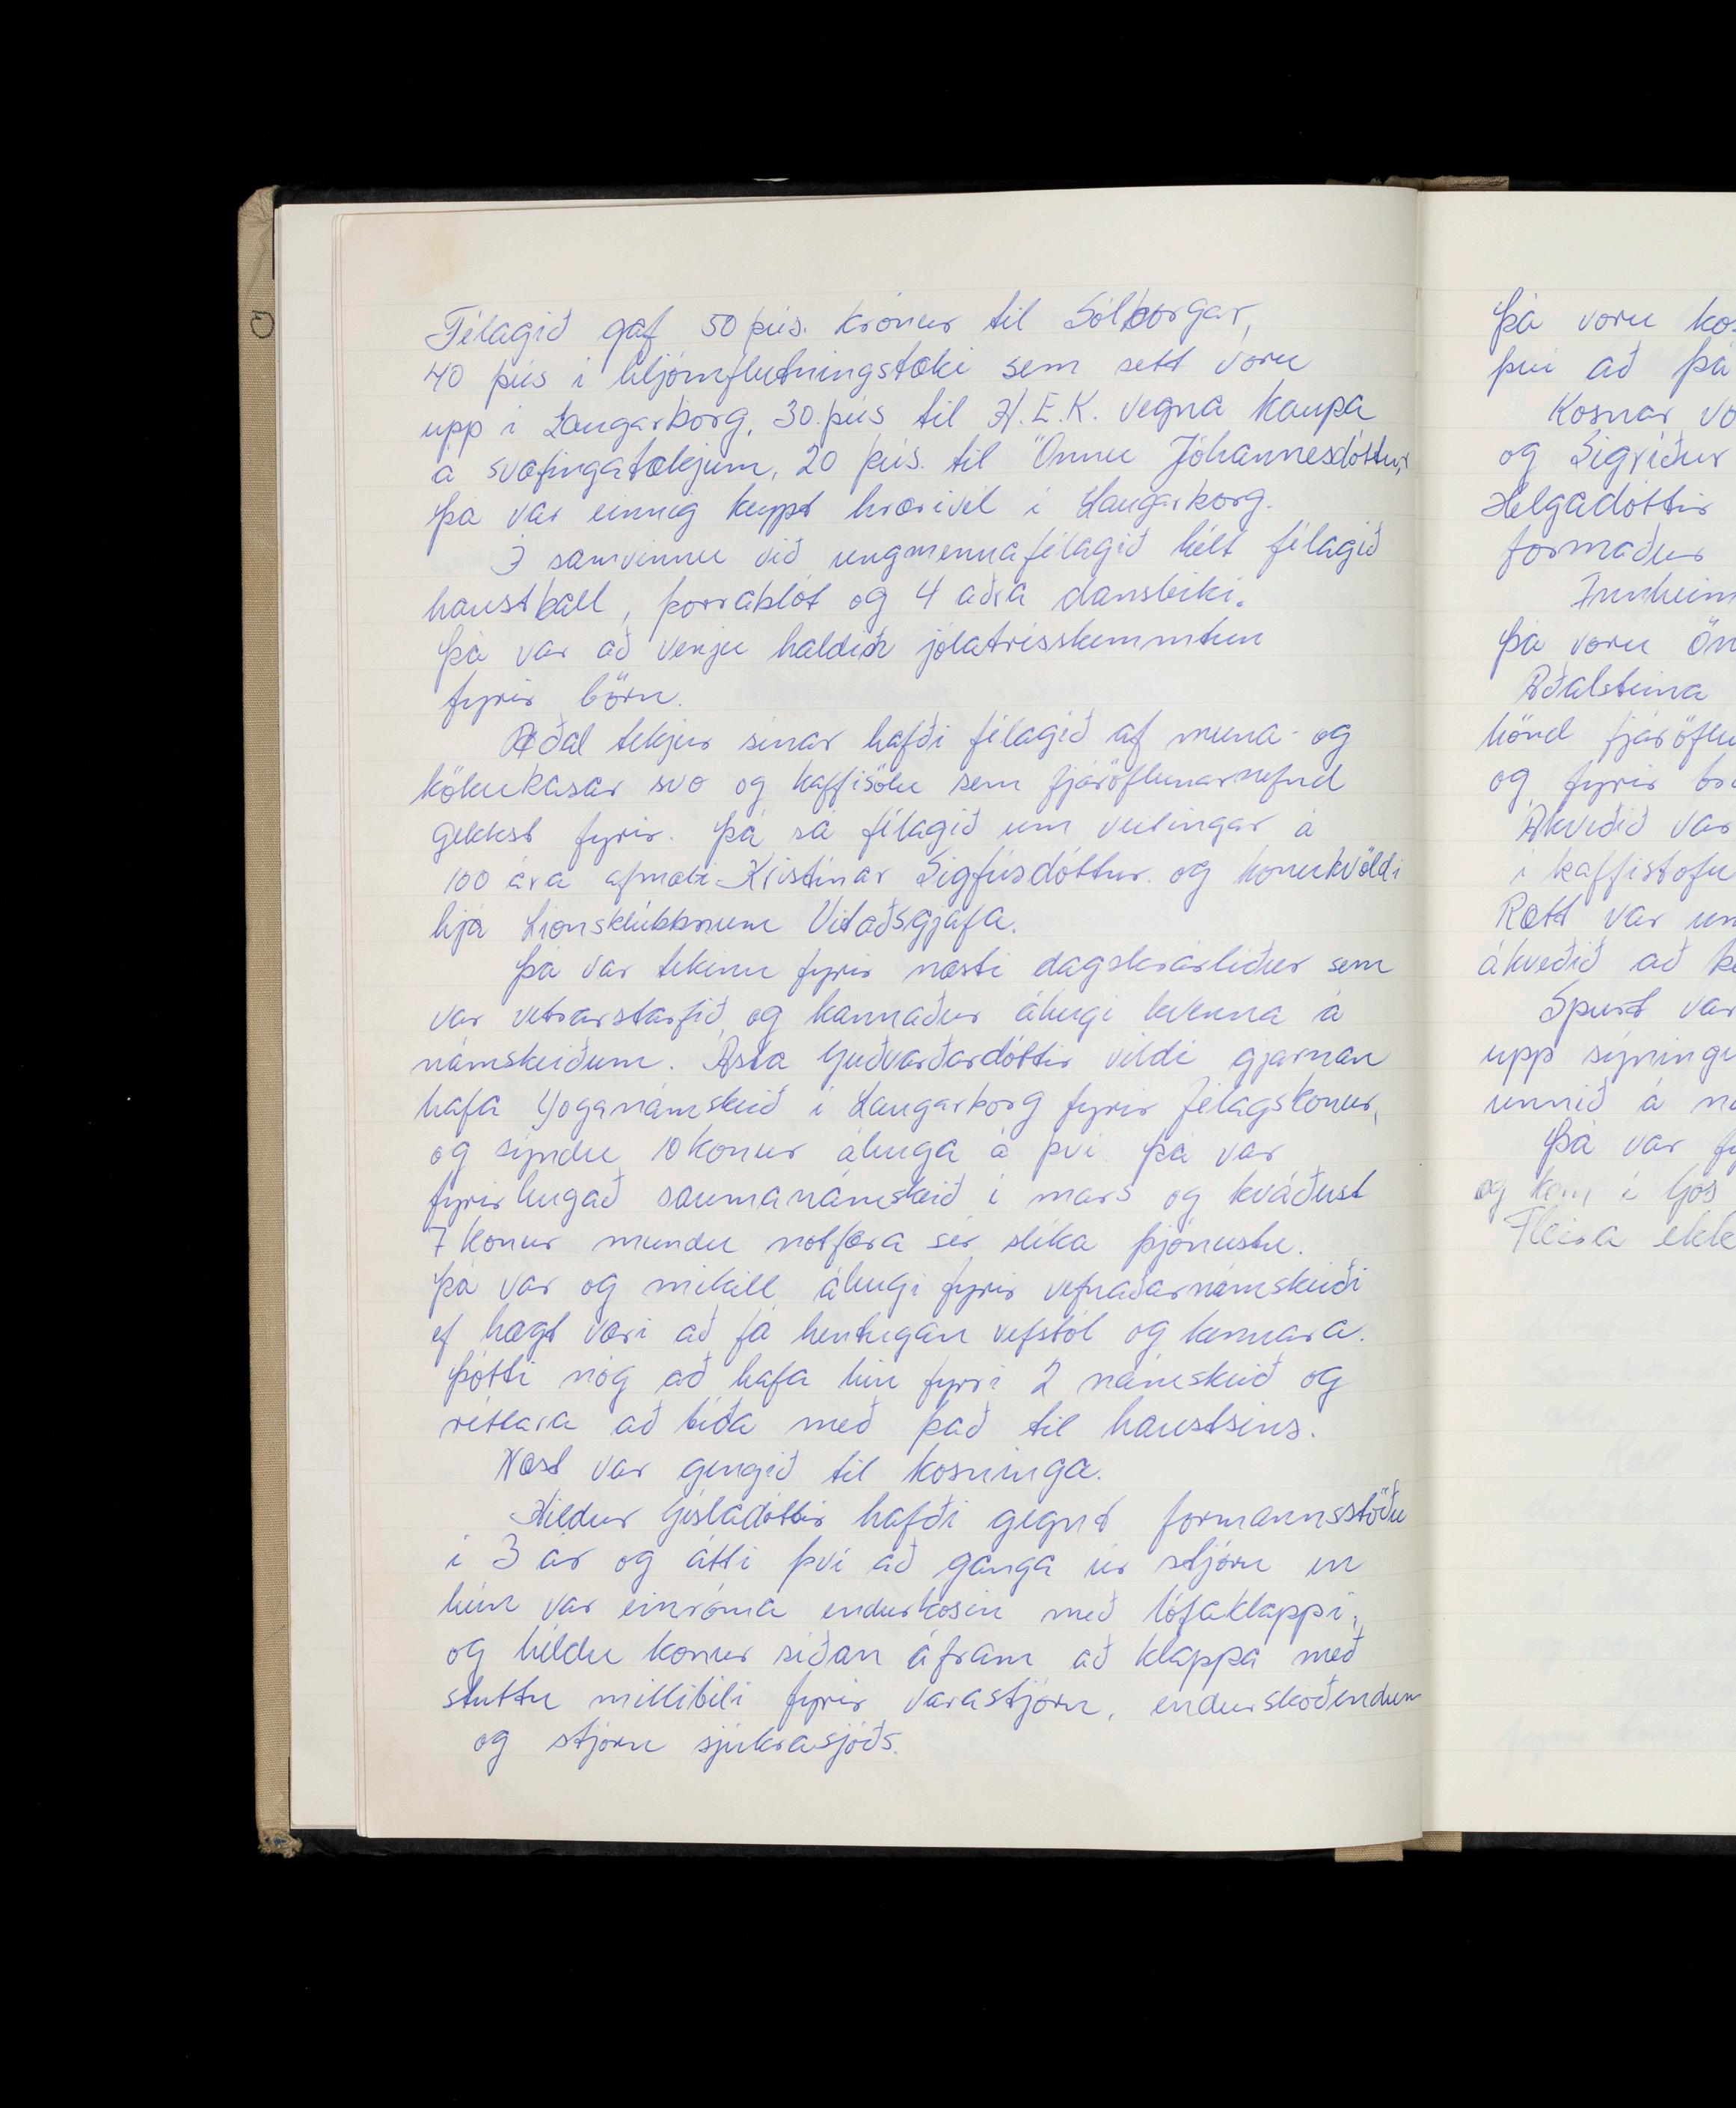 Félagið gaf 50 þús. krónur til Sólborgar,
40 þús í hljómflutningstæki sem sett voru
upp í Laugarborg, 30. þús til H.E.K. vegna kaupa
á svæfingatækjum, 20 þús. til Önnu Jóhannesdóttur,
Þá var einnig keypt hrærivél í Laugarborg.
Í samvinnu við ungmennafélagið hélt félagið
haustball, þorrablót og 4 aðra dansleiki.
Þá var að venju haldin jólatrésskemmtun
fyrir börn.
Aðal tekjur sínar hafði félagið af muna- og
kökubasar svo og kaffisölu sem fjáröflunarnefnd
gekkst fyrir. Þá sá félagið um veitingar á
100 ára afmæli Kristínar Sigfúsdóttur og konukvöldi
hjá Lionsklúbbnum Vitaðsgjafa.
Þá var tekinn fyrir næsti dagskrárliður sem
var vetrarstarfið, og kannaður áhugi kvenna á
námskeiðum. Ásta Guðvarðardóttir vildi gjarnan
hafa Yoganámskeið í Laugarborg fyrir félagskonur,
og sýndu 10 konur áhuga á því. Þá var
fyrirhugað saumanámskeið í mars og kváðust
7 konur mundu notfæra sér slíka þjónustu.
Þá var og mikill áhugi fyrir vefnaðarnámskeiði
ef hægt væri að fá hentugan vefstól og kennara.
Þótti nóg að hafa hin fyrri 2 námskeið og
réttara að bíða með það til haustsins.
Næst var gengið til kosninga.
Hildur Gísladóttir hafði gegnt formannsstöðu
í 3 ár og átti því að ganga úr stjórn en
hún var einróma endurkosin með lófaklappi,
og héldu konur síðan áfram að klappa með
stuttu millibili fyrir varastjórn, endurskoðendum
og stjórn sjúkrasjóðs.
Þá voru kos
því að þá
Kosnar vo
og Sigríður
Helgadóttir
formaður
Innheim
Þá voru Ön
Aðalsteina
hönd fjáröflu
og fyrir
Ákveðið var
í kaffistofu
Rætt var um
ákveðið að
Spurt var
upp sýningu
unnið á
Þá var fy
og kom í ljós
Fleira ekk